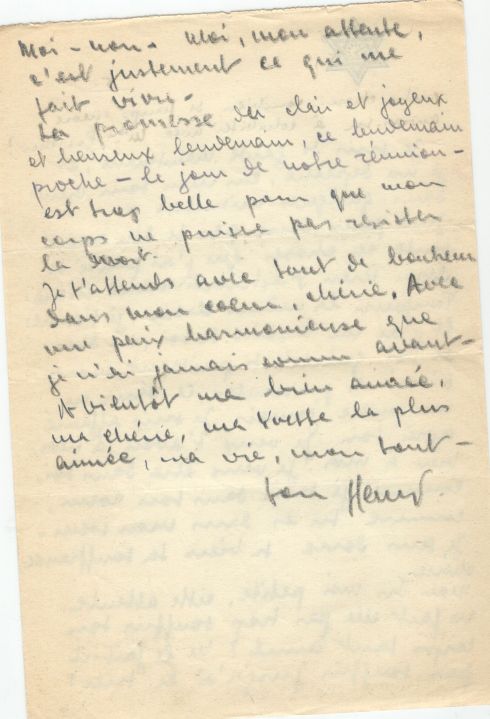 Moi – non – Moi, mon attente,
c'est justement ce qui me
fait vivre –
La promesse du clair et joyeux
et heureux lendemain, ce lendemain
proche – le jour de notre réunion –
est trop belle pour que mon
corps ne puisse pas résister
la mort.
Je t'attends avec tant de bonheur
dans mon coeur, chérie. Avec
une paix harmonieuse que
je n'ai jamais connu avant –
A bientôt ma bien aimée,
ma chérie, ma Yvette la plus
aimée, ma vie, mon tout –
ton Henry